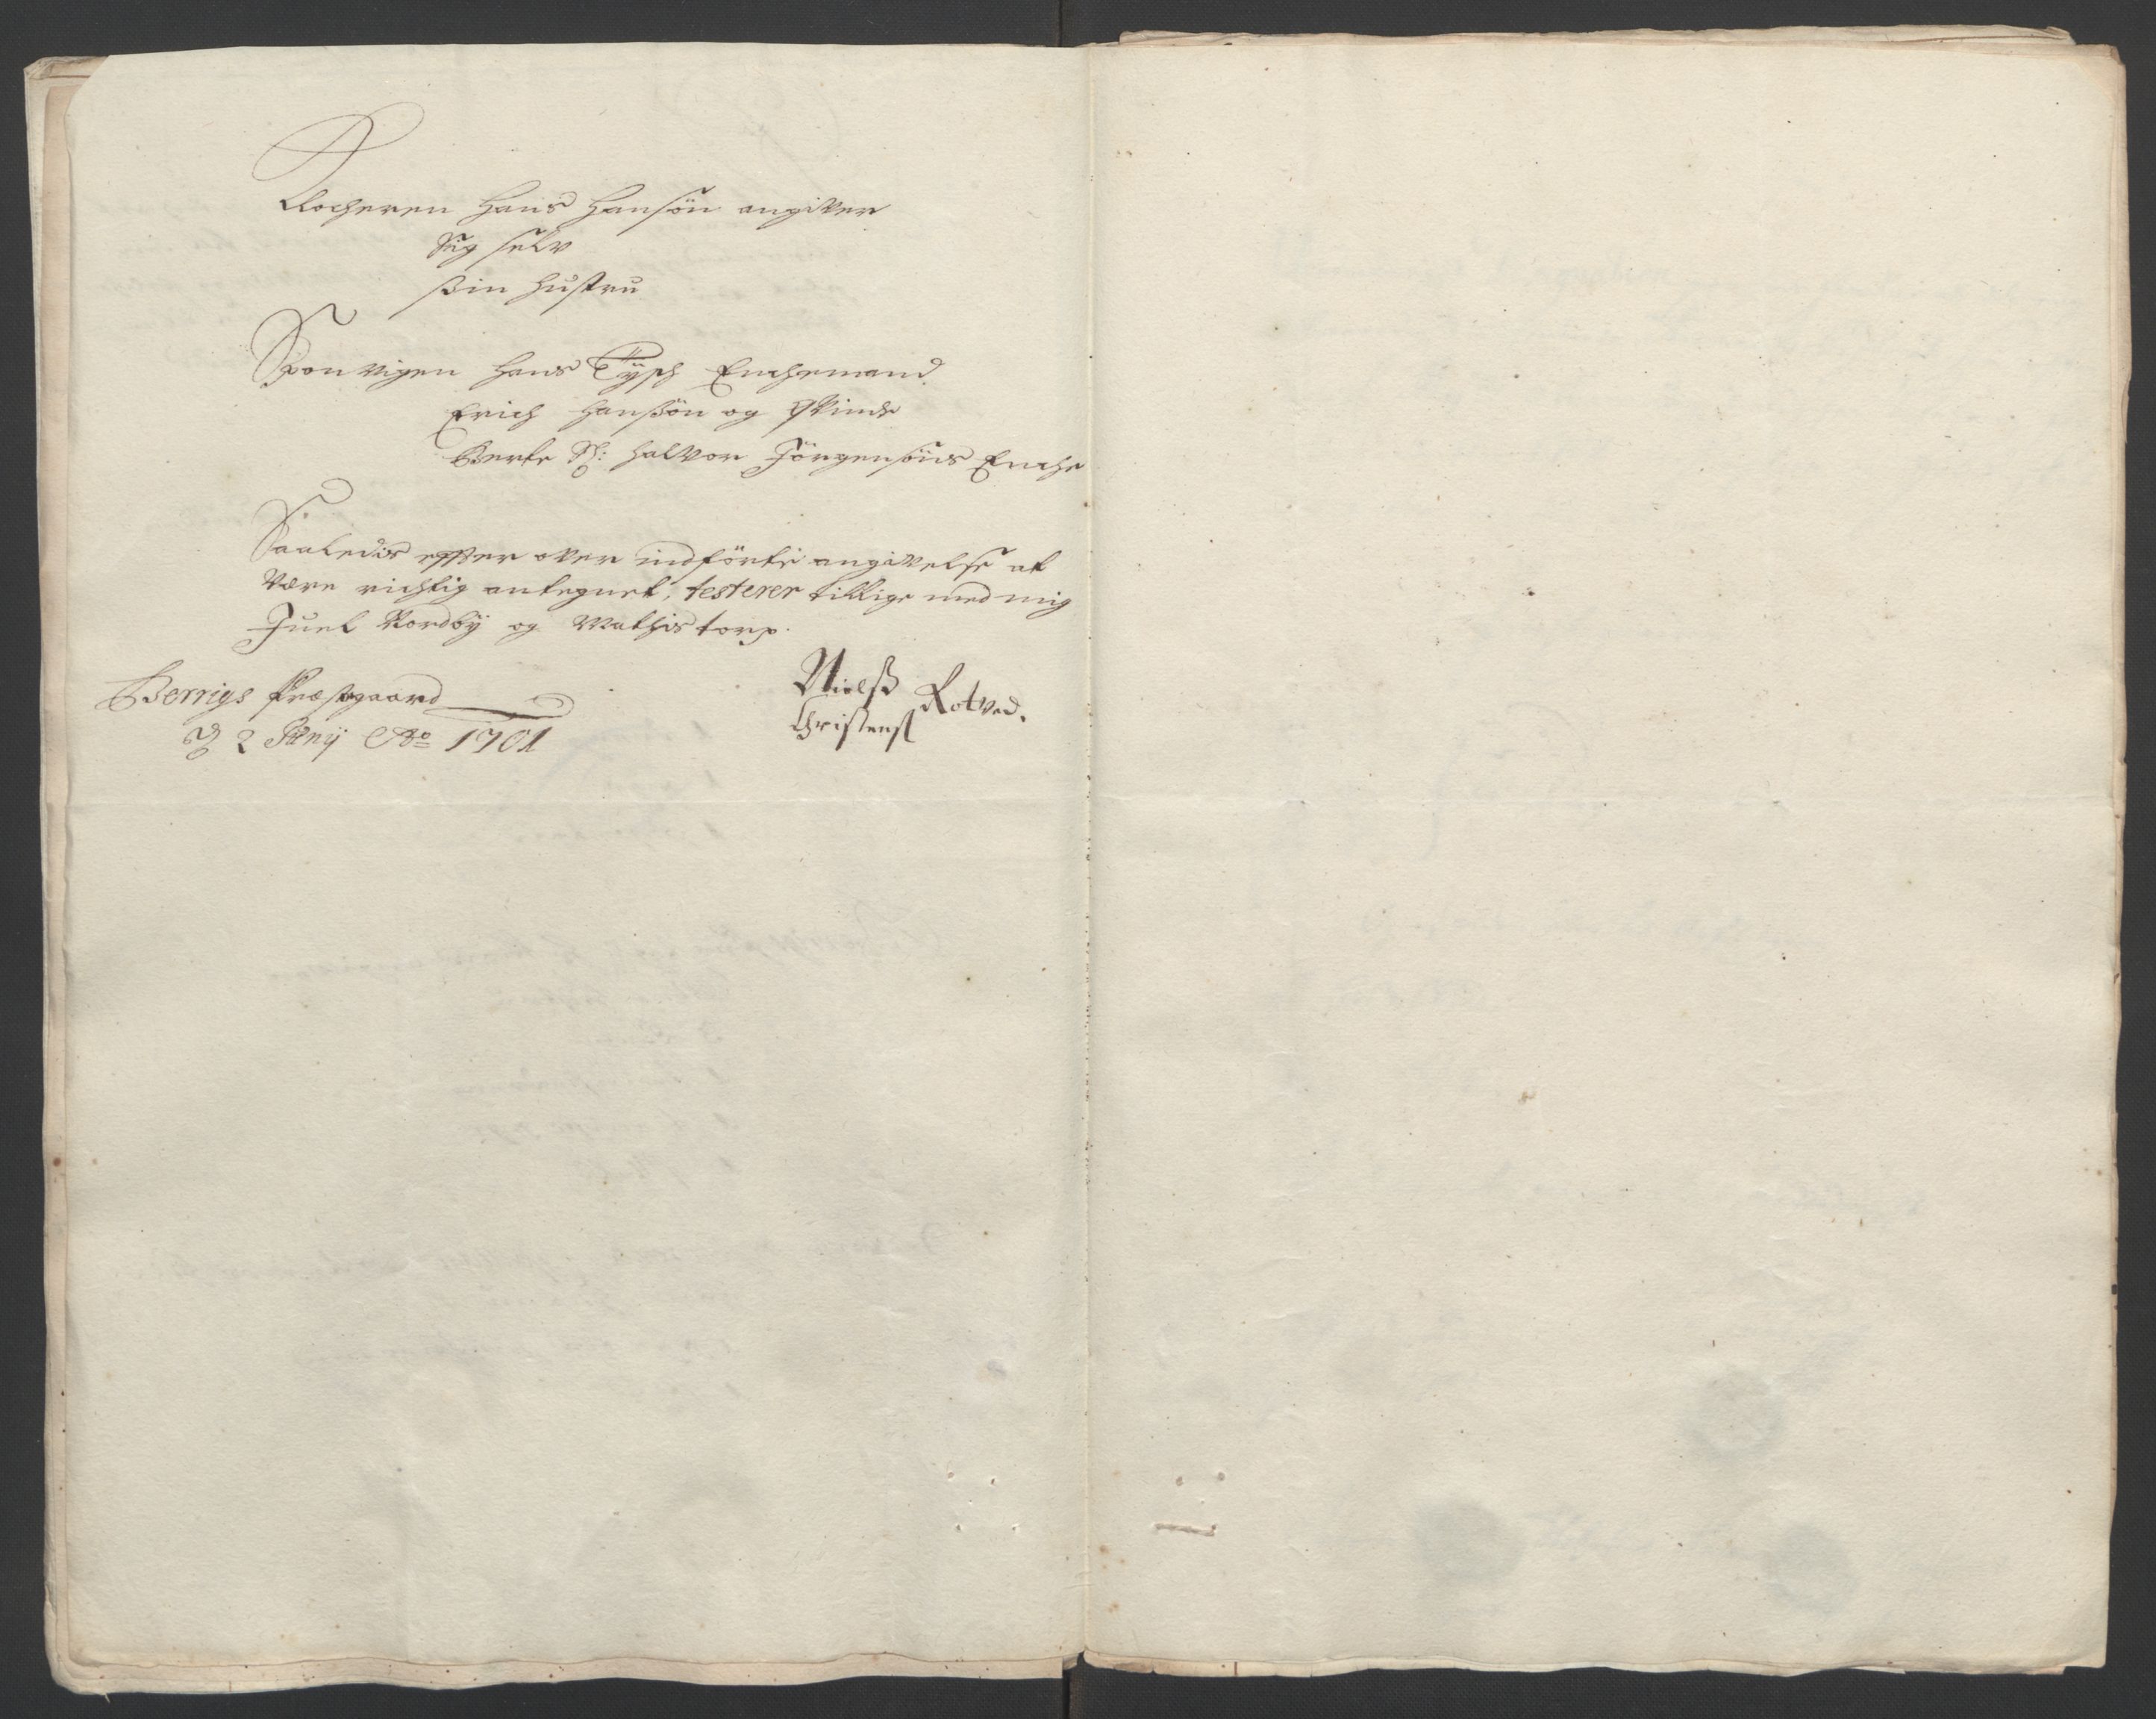 Klocheren Hans Hansön angiver
Sig selv
ßin Hustru
Sponvigen Hans Tÿsch Enchemand
Erich Hanßön og Qvinde
Berte Sl: Halvor Jörgensöns Enche
Saaledis effter over indförte angivelse at
Være richtig antegnet, testerer tillige med mig
Juel Nordbÿ og Mathis torp.
Berrigs Præstgaard
D 2 Junÿ Ao 1701
Nielß Rotved.
Christens